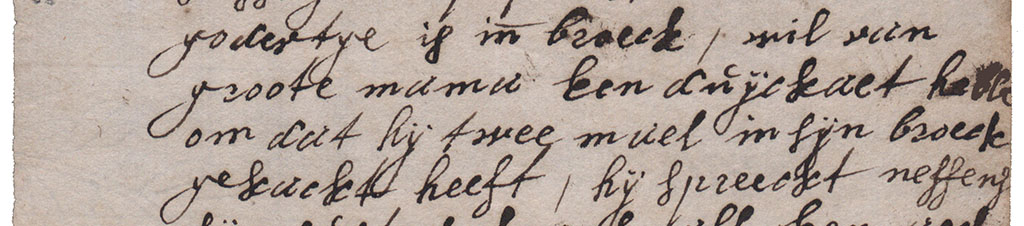 godertge is in broeck, wil van
groote mama een duyckaet hebbe
om dat hij twee mael in sijn broeck
gekackt heeft, hij spreeckt neffens